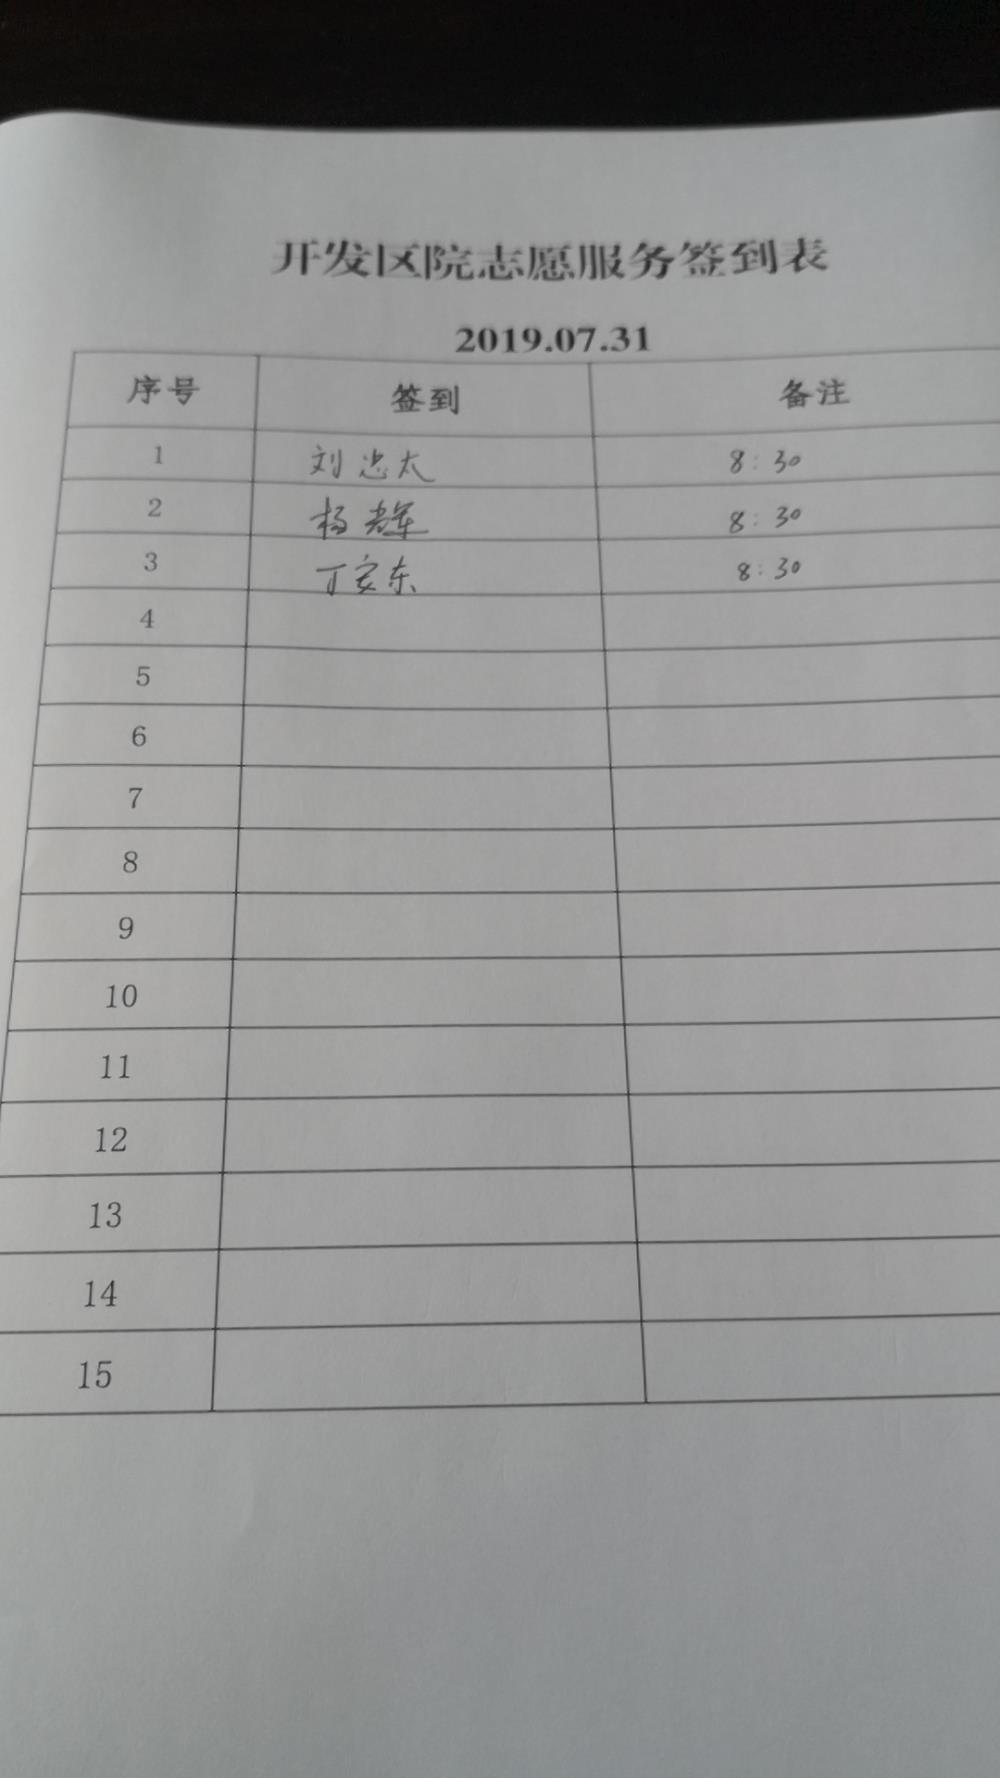 开发区院志愿服务签到表
2019.07.31
序号 签到 备注
1 刘忠太 8:30
2 杨 8:30
3 丁家东 8:30
4
5
6
7
8
9
10
11
12
13
14
15